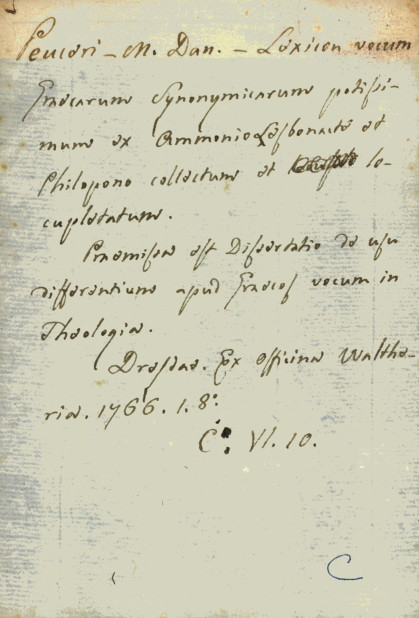 Peuceri – M. Dan. – Lexicon vocum
Graecarum Synonymicarum potissi-
mum ex Ammonio Lesbonacte et
Philopono collectum et lo-
cupletatum.
Praemissa est Dissertatio de usu
differentium apud Graecos vocum in
Theologia.
Dresdae. Ex officina Walthe-
ria. 1766. 1. 8º.
C. VI. 10.
C